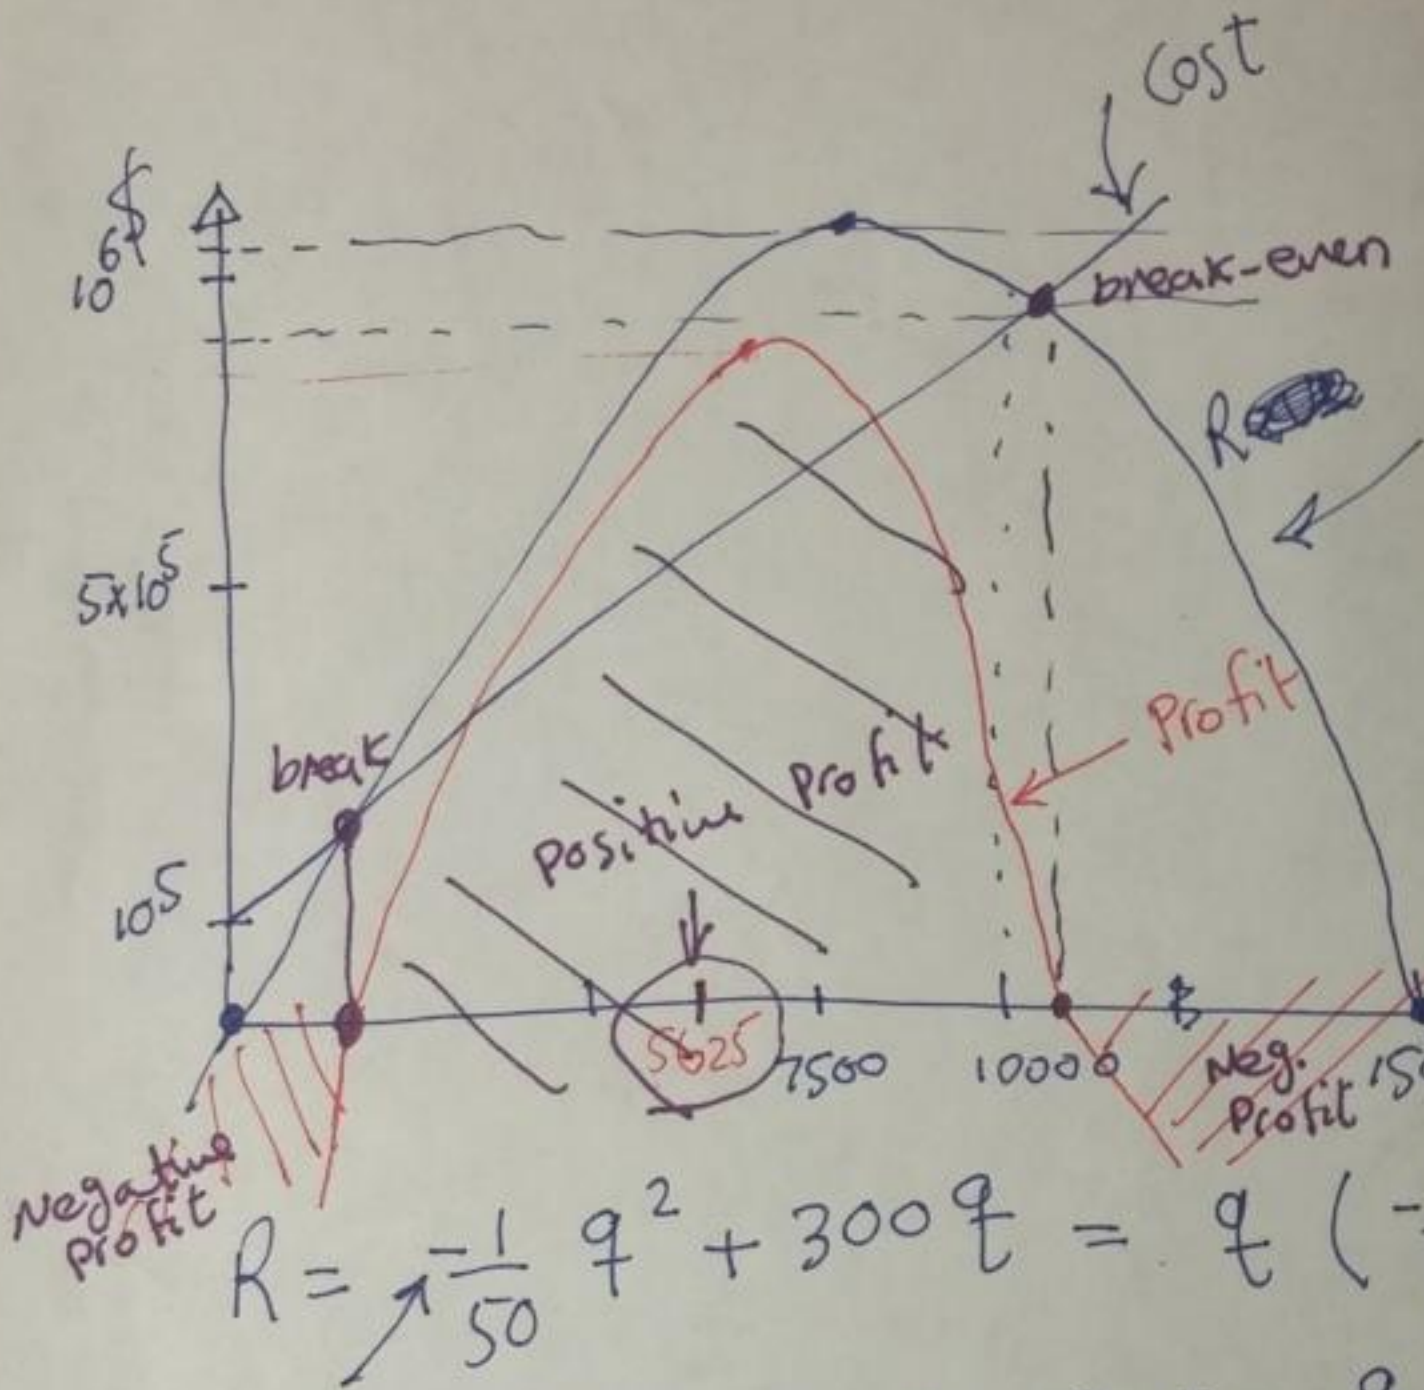 Cost
$
10^6
break-even
R
5x10^5
Profit
break
Positive Profit
10^5
5625
7500
10000
Neg.
Profit
Negative
profit
R = -1/50 q^2 + 300q = q (-